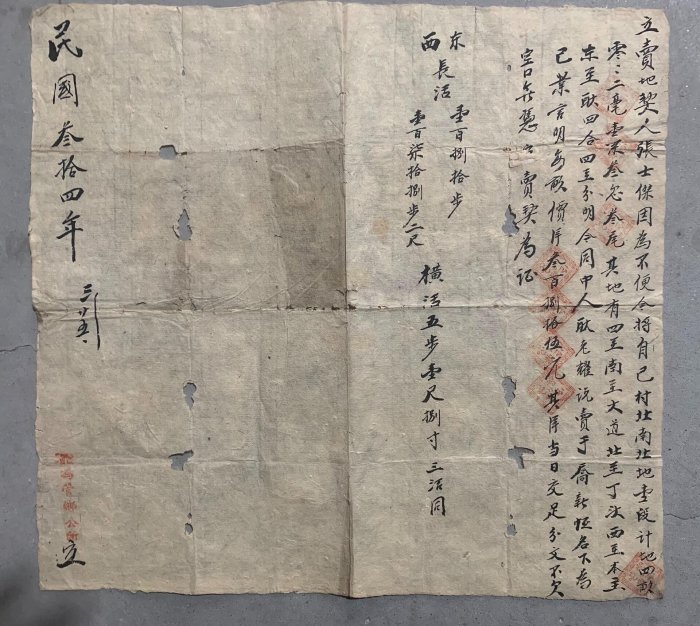 立賣地契人張士傑因為不便今將自己村北南北地壹段計地四畝
零三二毫壹系叁忽叁尾其地有四至南至大道北至丁 西至本主
东至耿四合四至分明今同中人耿老耀说賣于喬新恒名下為
己業言明每畝價洋叁百捌拾伍元其洋当日交足分文不欠
空口無憑 賣契為证
东 長活 壹百捌拾步
西 壹百柒拾捌步二尺
橫活五步壹尺捌寸 三活同
民國叁拾四年 三 廿五 立
營鄉公所